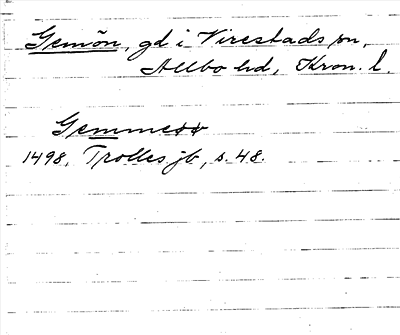 Gemön, gd i Virestads sn,
Allbo hd, Kron. l.
Gemmesö
1498, Trolles jb, s. 48.